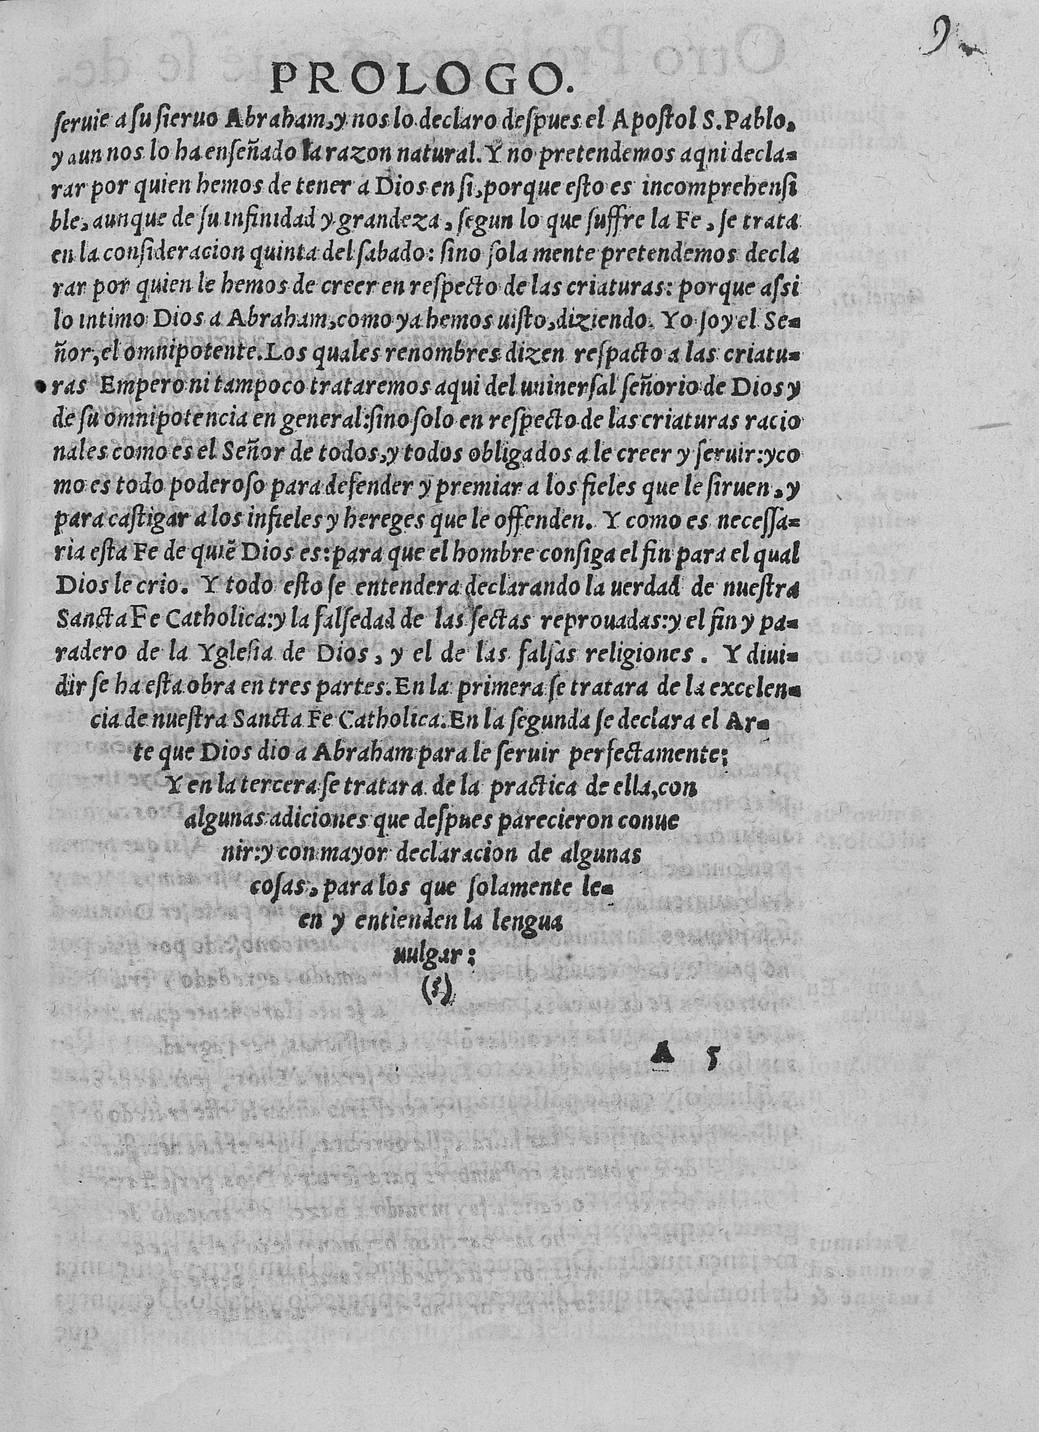 9
PROLOGO.
ſeruie a ſu ſieruo Abraham, y nos lo declaro deſpues el Apoſtol S. Pablo,
y aun nos lo ha enſeñado la razon natural. Y no pretendemos aqni decla-
rar por quien hemos de tener a Dios en ſi, porque eſto es incomprehenſi
ble, aunque de ſu infinidad y grandeza, ſegun lo que ſuffre la Fe, ſe trata
en la conſideracion quinta del ſabado: ſino ſola mente pretendemos decla
rar por quien le hemos de creer en reſpecto de las criaturas: porque aſsi
lo intimo Dios a Abraham, como ya hemos uiſto, diziendo. Yo ſoy el Se-
ñor, el omnipotente. Los quales renombres dizen reſpacto a las criatu-
ras Empero ni tampoco trataremos aqui del uninerſal ſeñorio de Dios y
de ſu omnipotencia en general: ſino ſolo en reſpecto de las criaturas racio
nales como es el Señor de todos, y todos obligados a le creer y ſeruir: y co
mo es todo poderoſo para defender y premiar a los fieles que le ſiruen, y
para caſtigar a los infieles y hereges que le offenden. Y como es neceſſa-
ria eſta Fe de quiẽ Dios es: para que el hombre conſiga el fin para el qual
Dios le crio. Y todo eſto ſe entendera declarando la uerdad de nueſtra
Sancta Fe Catholica: y la falſedad de las ſectas reprouadas: y el fin y pa-
radero de la Ygleſia de Dios, y el de las falſas religiones. Y diui-
dir ſe ha eſta obra en tres partes. En la primera ſe tratara de la excelen-
cia de nueſtra Sancta Fe Catholica. En la ſegunda ſe declara el Ar-
te que Dios dio a Abraham para le ſeruir perfectamente;
Y en la tercera ſe tratara de la practica de ella, con
algunas adiciones que deſpues parecieron conue
nir: y con mayor declaracion de algunas
coſas, para los que ſolamente le-
en y entienden la lengua
uulgar;
(§)
A 5